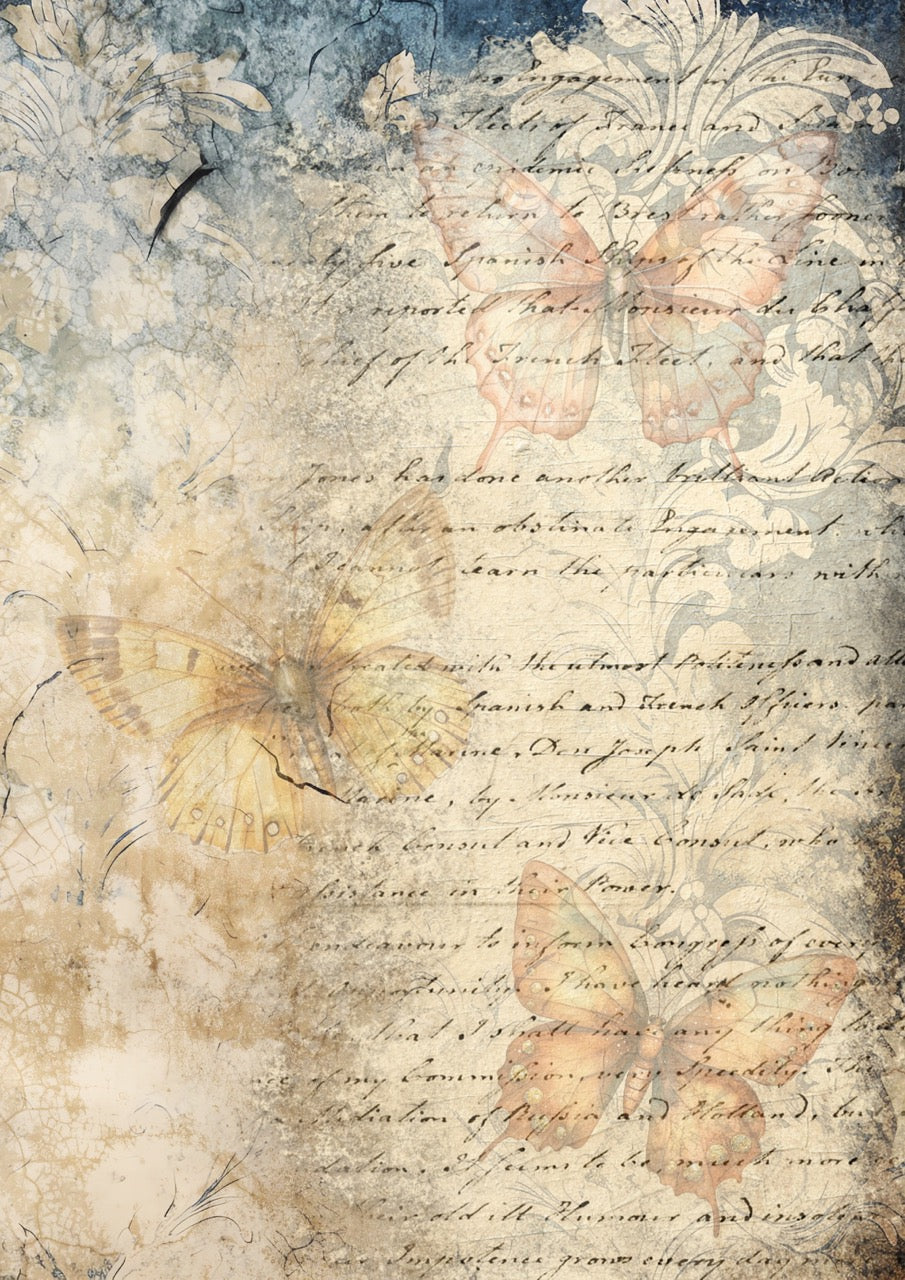 Engagement in the
Fleets of France and
an epidemic Sickness on Bo
them to return to Brest rather sooner
five Spanish Ships of the Line in
reported that Monsieur du Chaff
of the French Fleet, and that the
Jones has done another brilliant Action
after an obstinate Engagement.
I cannot learn the particulars with
treated with the utmost Politeness and all
by Spanish and French Officers.
Marine, Don Joseph Saint Vince
Marine, by Monsieur de Sade, the
Consul and Vice Consul, who
in their Power.
endeavour to inform Congress of every
opportunity. I have heard nothing
that I shall have any thing to
of my Commission, very Speedily. The
Mediation of Russia and Holland, but
It seems to be, much more
old ill Humour and insolen
Impotence grows every day m